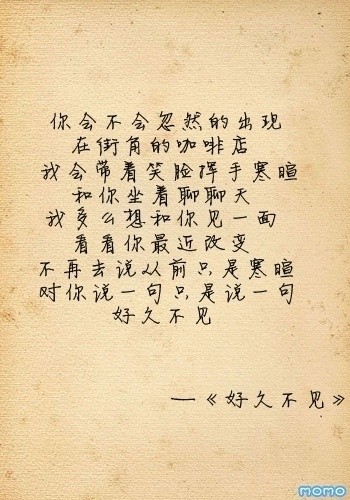 你会不会忽然的出现
在街角的咖啡店
我会带着笑脸挥手寒暄
和你坐着聊聊天
我多么想和你见一面
看看你最近改变
不再去说从前只是寒暄
对你说一句只是说一句
好久不见
—《好久不见》
momo